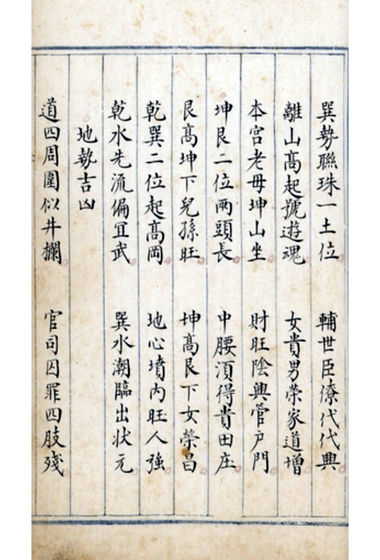 巽勢聯珠一土位　輔世臣僚代代興
離山高起號遊魂　女貴男榮家道增
本宮老母坤山坐　財旺陰興管戶門
坤艮二位兩頭長　中腰湏得貴田庄
艮高坤下兒孫旺　坤高艮下女榮昌
乾巽二位起高岡　地心墳內旺人強
乾水先流偏宜武　巽水潮臨出状元
地勢吉凶
道四周圍似井欄　官司囚罪四肢殘